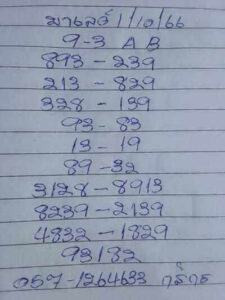 มาเลย์ 1/10/66
9-3 A B
893-239
213-829
328-139
93-83
13-19
89-32
3128-8913
8239-2139
4832-1829
93182
057-1264633